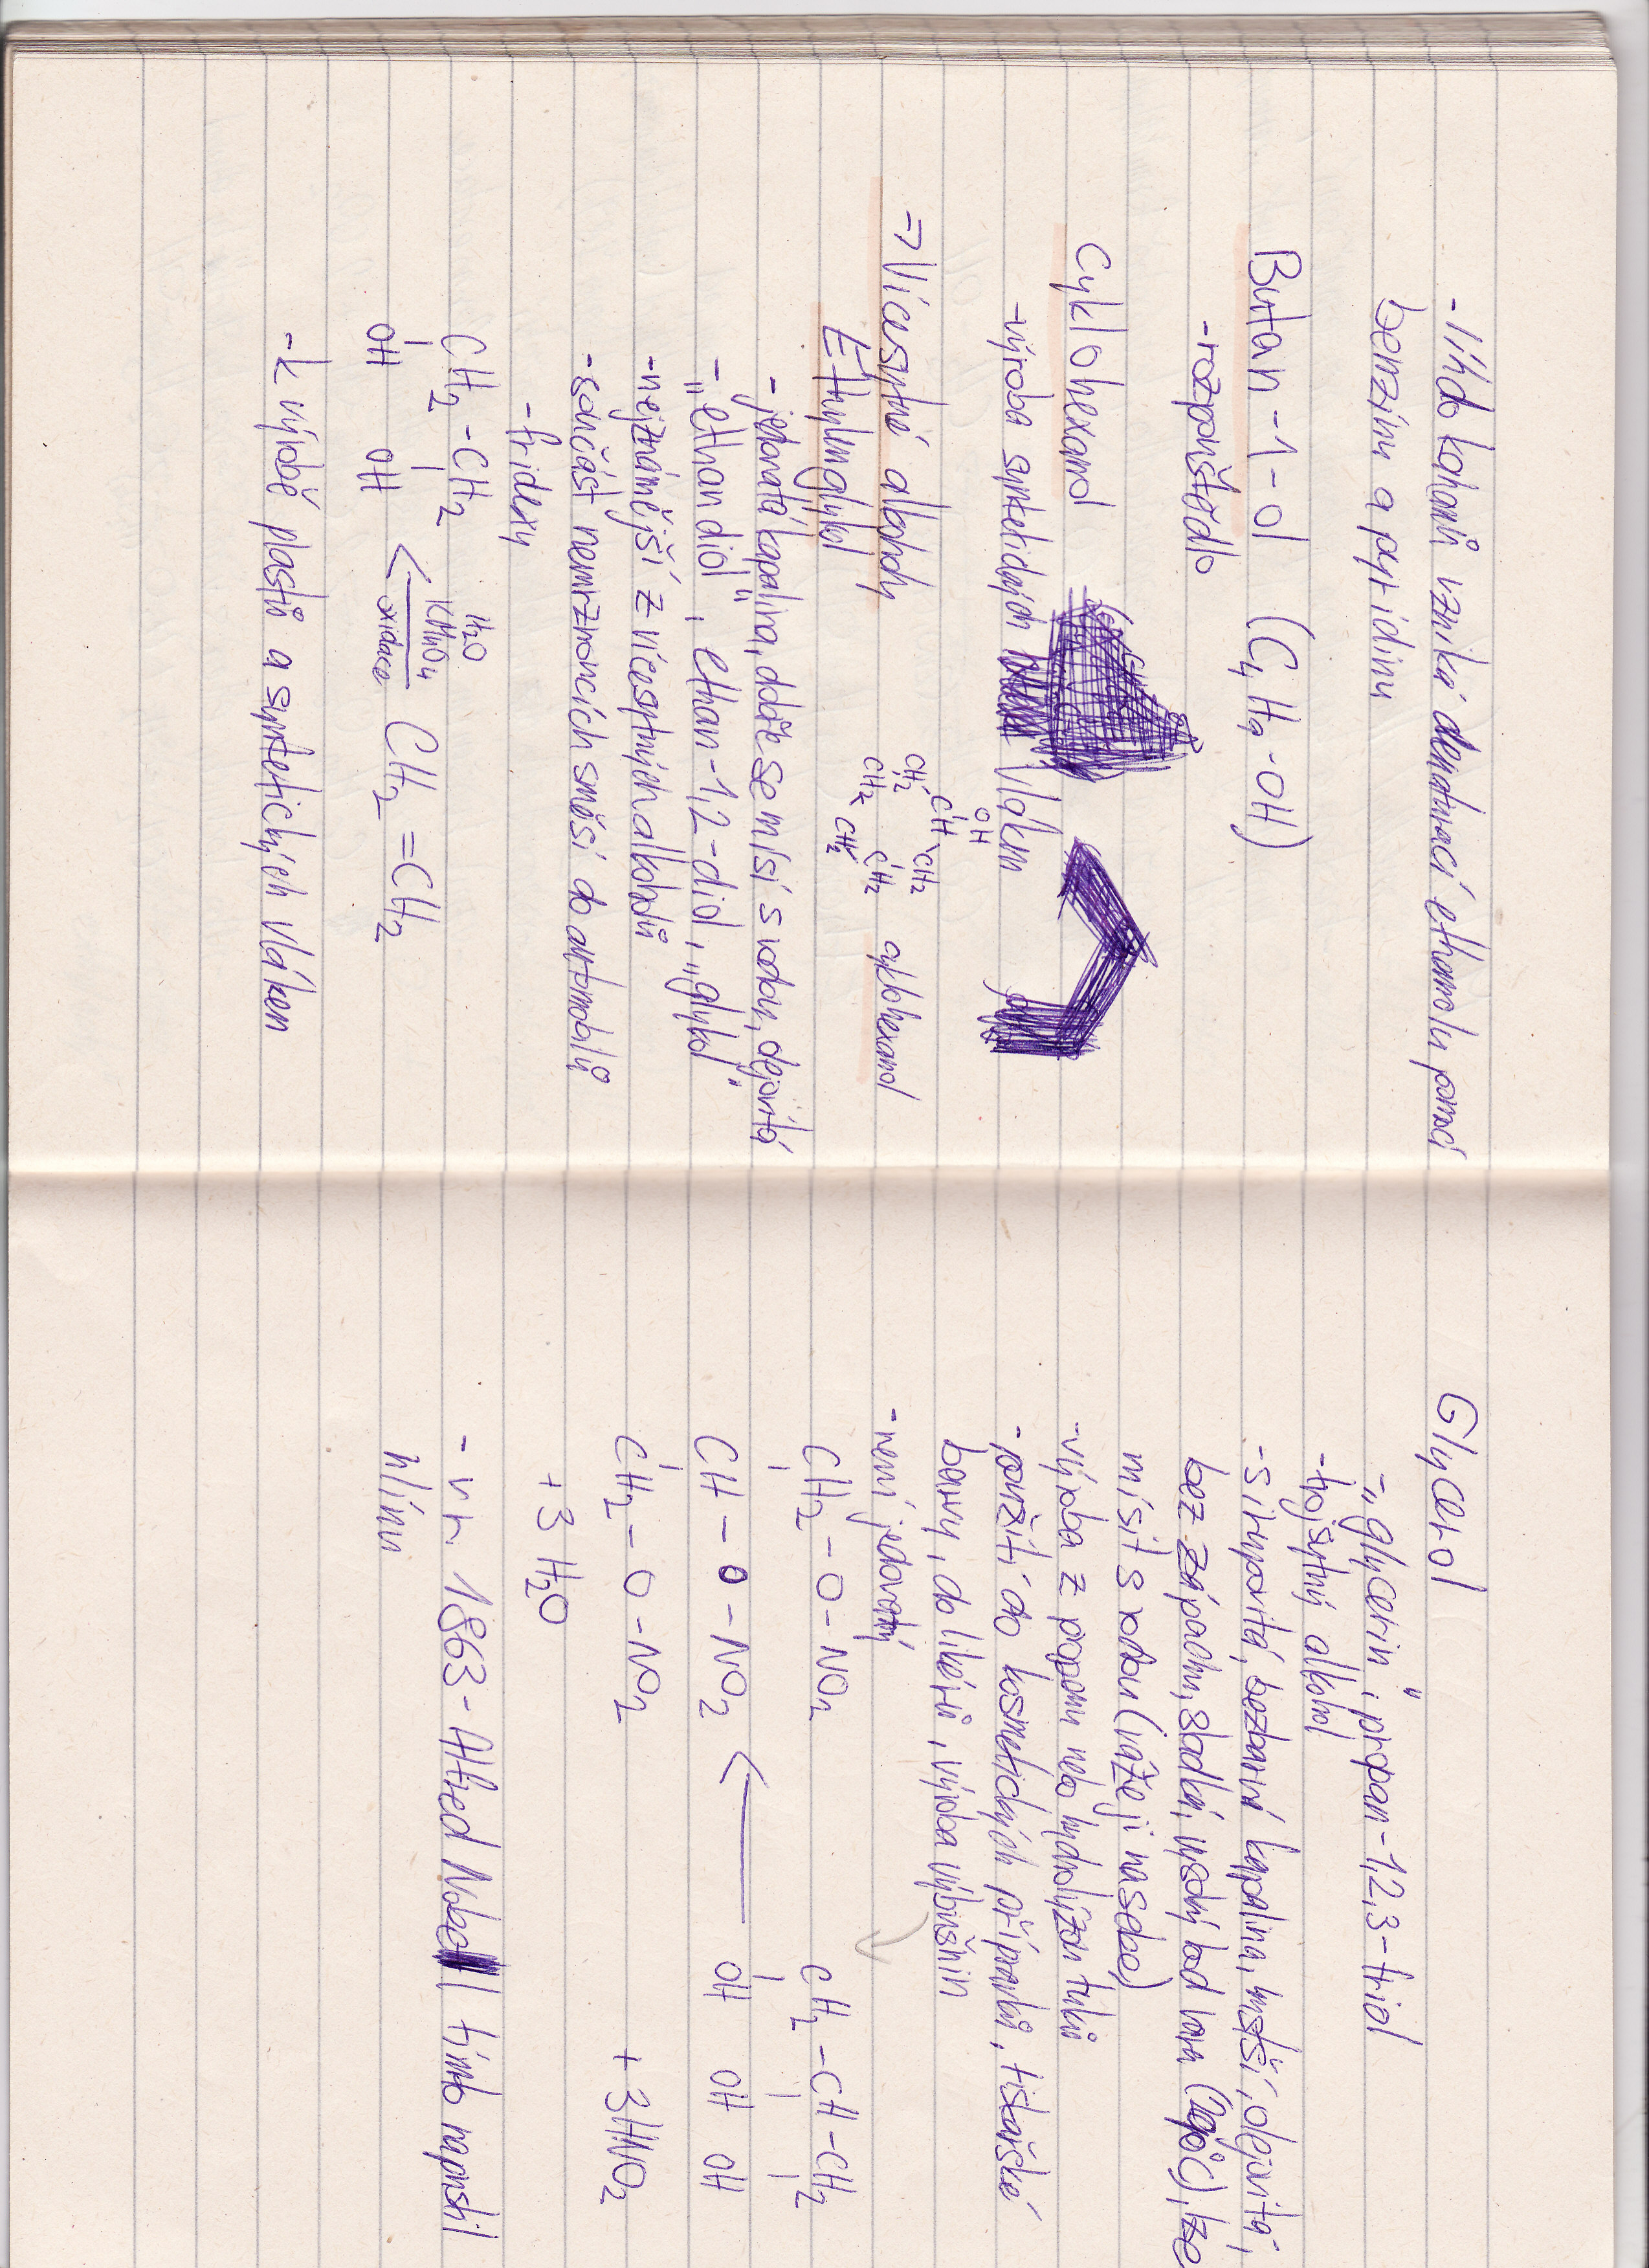 -líh do kahanů vzniká denaturací ethanolu pomocí
benzínu a pyridinu
Butan-1-ol (C₄H₉-OH)
-rozpouštědlo
Cyklohexanol
-výroba syntetických vláken
OH
CH
CH₂ CH₂
CH₂ CH₂
CH₂
cyklohexanol
⇒Vícesytné alkoholy
Ethylenglykol
-jedovatá kapalina, dobře se mísí s vodou, olejovitá
-„ethandiol", ethan-1,2-diol, „glykol"
-nejznámější z vícesytných alkoholů
-součást nemrznoucích směsí do automobilů
-fridexy
H₂O
CH₂-CH₂ KMnO₄
OH OH ← oxidace CH₂=CH₂
-k výrobě plastů a syntetických vláken
Glycerol
-„glycerin", propan-1,2,3-triol
-trojsytný alkohol
-sirupovitá, bezbarvá kapalina, olejovitá,
bez zápachu, sladká, vysoký bod varu (290°C), lze
mísit s vodou (váže ji na sebe)
-výroba z propenu nebo hydrolýzou tuků
-použití do kosmetických přípravků, tiskařské
barvy, do likérů, výroba výbušnin
-není jedovatý
CH₂-O-NO₂ CH₂-CH-CH₂
CH-O-NO₂ ← OH OH OH
CH₂-O-NO₂ +3HNO₂
+3 H₂O
-v r. 1863-Alfred Nobel tímto napustil
hlínu